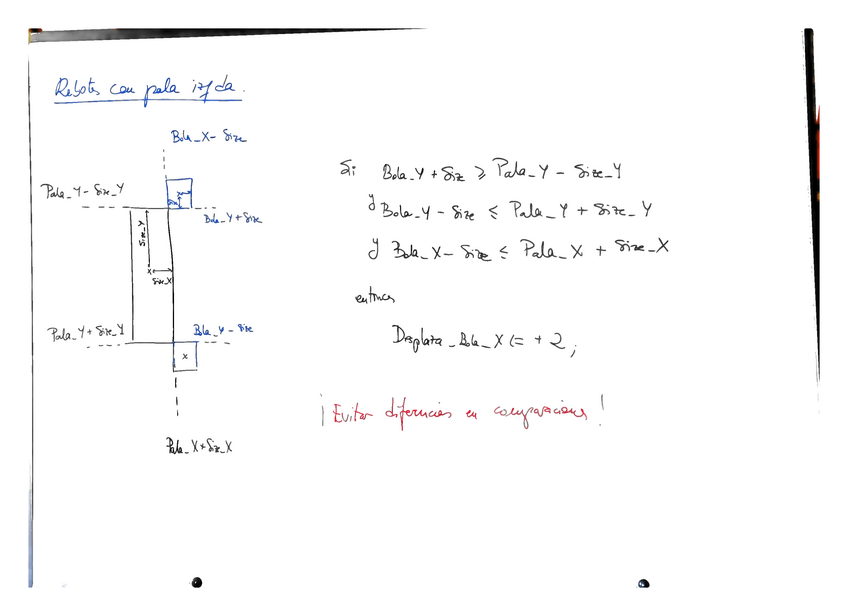 Rebotes con pala izqda.
Bola_X - Size
Pala_Y - Size_Y
Size
Bola_Y + Size
Size_Y
X
Size_X
Pala_Y + Size_Y
Bola_Y - Size
x
Pala_X + Size_X
Si Bola_Y + Size ≥ Pala_Y - Size_Y
y Bola_Y - Size ≤ Pala_Y + Size_Y
y Bola_X - Size ≤ Pala_X + Size_X
entonces
Desplaza_Bola_X <= + 2 ;
¡Evitar diferencias en comparaciones!